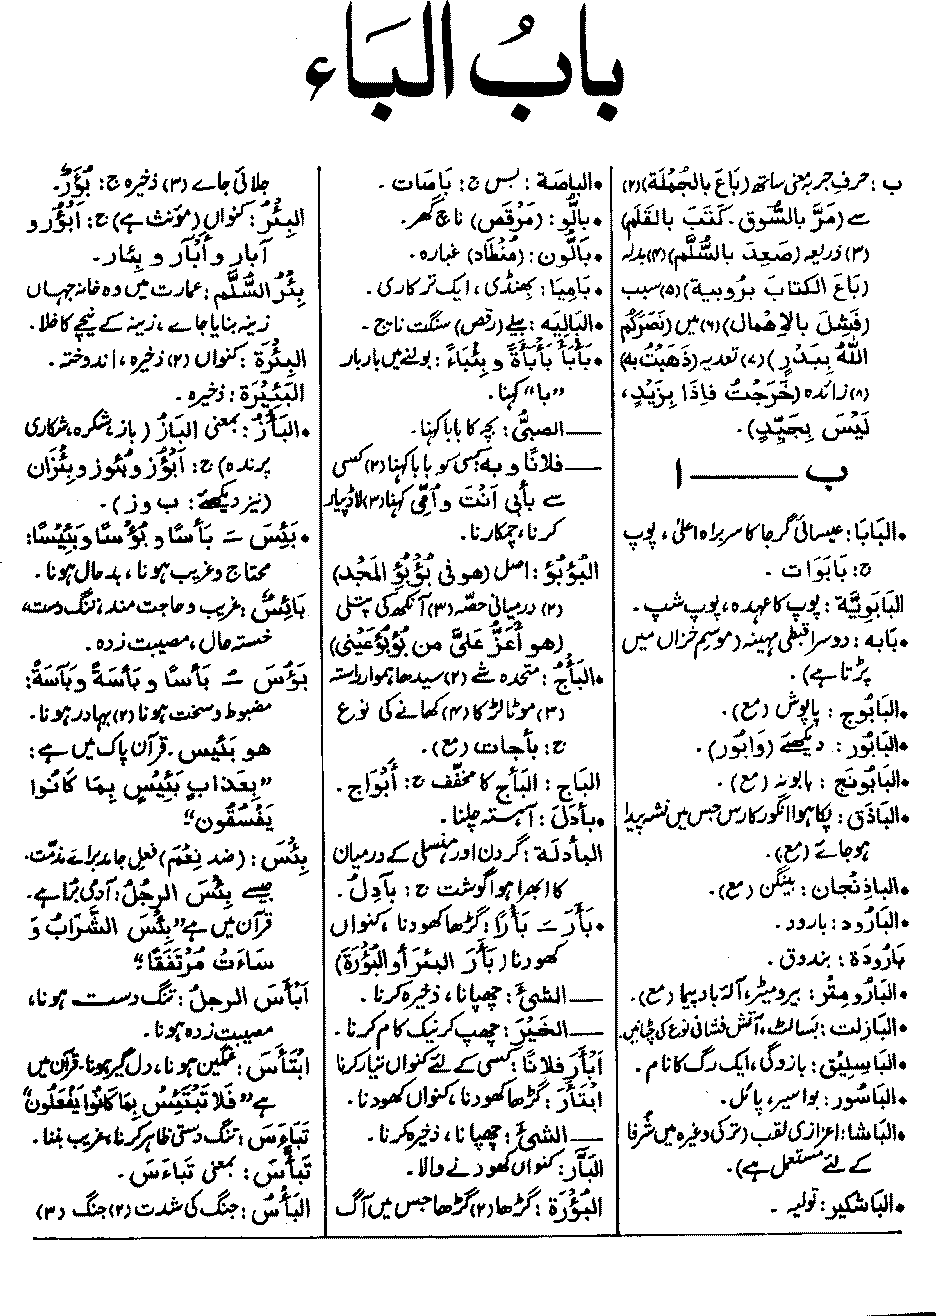 بابُ البَاء
ب : حرفِ جر بمعنی ساتھ (بَاعَ بِالجُمْلَة) (۲)
سے (مَرَّ بِالسُّوق ۔ كَتَبَ بِالقَلَم)
(۳) ذریعہ (صَعِدَ بِالسُّلَّم) (۴) بدلہ
(بَاعَ الكتابَ بِرُوبِية) (۵) سبب
(فَشِلَ بِالإهْمال) (۶) میں (نَصَرَكُم
اللّٰهُ بِبَدْرٍ) (۷) تعدیہ (ذَهَبْتُ بِهٖ)
(۸) زائدہ (خَرَجْتُ فَإذَا بِزَيْدٍ ،
لَيْسَ بِجَيِّدٍ) ۔
ب ــــــ ا
• البَابَا : عیسائی گرجا کا سربراہ اعلیٰ ، پوپ
ج : بَابَوَات ۔
البَابَوِيَّة : پوپ کا عہدہ ، پوپ شپ ۔
• بَابِه : دوسرا قبطی مہینہ (موسم خزاں میں
پڑتا ہے) ۔
• البَابُوج : پاپوش (مع) ۔
• البَابُور : دیکھئے (وَابُور) ۔
• البَابُونج : بابونہ (مع) ۔
• البَاذَق : پکا ہوا انگور کا رس جس میں نشہ پیدا
ہو جائے (مع) ۔
• البَاذِنْجان : بیگن (مع) ۔
• البَارُود : بارود ۔
بَارُودَة : بندوق ۔
• البَارُومِتْر : بیرومیٹر ، آلۂ باد پیما (مع) ۔
• البَازَلت : بسالٹ ، آتش فشانی نوع کی چٹانیں
• البَاسِلِيق : بازو کی ، ایک رگ کا نام ۔
• البَاسُور : بواسیر ، پائل ۔
• البَاشَا : اعزازی لقب (ترکی وغیرہ میں شرفا
کے لئے مستعمل ہے) ۔
• البَاشكير : تولیہ ۔
• البَاصَة : بس ج : بَاصَات ۔
• بَالُّو : (مَرْقَص) ناچ گھر ۔
• بَالُّون : (مُنْطَاد) غبارہ ۔
• بَامِيَا : بھنڈی ، ایک ترکاری ۔
• البَالِيه : بیلے (رقص) سنگت ناچ ۔
• بَأْبَأَ بَأْبَأَةً و بِئْبَاءً : بولنے میں بار بار
"با" کہنا ۔
ــــ الصبىُّ : بچہ کا بابا کہنا ۔
ــــ فلانًا و به : کسی کو بابا کہنا (۲) کسی
سے بأبی أنتَ و أمّی کہنا (۳) لاڈ پیار
کرنا ، چمکارنا ۔
البُؤبُؤ : اصل (هو فى بُؤْبُؤِ المَجْد)
(۲) درمیانی حصّہ (۳) آنکھ کی پتلی
(هو أعَزُّ عَلَىَّ من بُؤْبُؤِ عَيْنِي)
• البَأْج : متحدہ شے (۲) سیدھا ہموار راستہ
(۳) موٹا لڑکا (۴) کھانے کی نوع
ج : بأجات (مع) ۔
البَاج : البَأج کا مخفّف ج : أبْوَاج ۔
• بأدَلَ : آہستہ چلنا ۔
البأدلة : گردن اور ہنسلی کے درمیان
کا ابھرا ہوا گوشت ج : بآدِلُ ۔
• بَأَرَ ــَ بَأْرًا : گڑھا کھودنا ، کنواں
کھودنا (بَأَرَ البئرَ أو البُؤْرَةَ)
ــــ الشئَ : چھپانا ، ذخیرہ کرنا ۔
ــــ الخَيْرَ : چھپ کر نیک کام کرنا ۔
أبْأَرَ فلانًا : کسی کے لئے کنواں تیار کرنا
ابْتَأَرَ : گڑھا کھودنا ، کنواں کھودنا ۔
ــــ الشئَ : چھپانا ، ذخیرہ کرنا ۔
البَأَّرُ : کنواں کھودنے والا ۔
البُؤْرَة : گڑھا (۲) گڑھا جس میں آگ
جلائی جائے (۳) ذخیرہ ج : بُؤَرٌ ۔
البِئْرُ : کنواں (مؤنث ہے) ج : أبْؤُر و
آبار و أبْآر و بِئار ۔
بِئْرُ السُّلَّم : عمارت میں وہ خانہ جہاں
زینہ بنایا جائے ، زینہ کے نیچے کا خلا ۔
البِئْرَة : کنواں (۲) ذخیرہ ، اندوختہ ۔
البَئِيْرَة : ذخیرہ ۔
• البَأْزُ : بمعنی البَازُ (باز ، شکرہ ، شکاری
پرندہ) ج : أبْؤُز و بُئُوز و بِئْزَان
(نیز دیکھئے : ب و ز) ۔
• بَئِسَ ــَ بَأسًا و بُؤْسًا و بَئِيْسًا :
محتاج و غریب ہونا ، بد حال ہونا ۔
بَائِسٌ : غریب و حاجت مند ، تنگ دست ،
خستہ حال ، مصیبت زدہ ۔
بَؤُسَ ــُ بَأسًا و بَأسَةً و بَآسَةً :
مضبوط و سخت ہونا (۲) بہادر ہونا ۔
هو بَئِيْس ۔ قرآن پاک میں ہے :
"بِعَذَابٍ بَئِيْسٍ بِمَا كَانُوا
يَفْسُقُون"
بِئْسَ : (ضد نِعْمَ) فعل جامد برائے مذمّت ،
جیسے بِئْسَ الرجلُ : آدمی بُرا ہے ۔
قرآن میں ہے "بِئْسَ الشَّرَابُ وَ
سَاءَتْ مُرْتَفَقًا"
أبْأَسَ الرجلُ : تنگ دست ہونا ،
مصیبت زدہ ہونا ۔
ابْتَأَسَ : غمگین ہونا ، دل گیر ہونا ۔ قرآن میں
ہے "فَلَا تَبْتَئِسْ بِمَا كَانُوا يَفْعَلُون"
تَبَاءَسَ : تنگ دستی ظاہر کرنا ، غریب بننا ۔
تَبَأَّسَ : بمعنی تَبَاءَسَ ۔
البَأْسُ : جنگ کی شدت (۲) جنگ (۳)